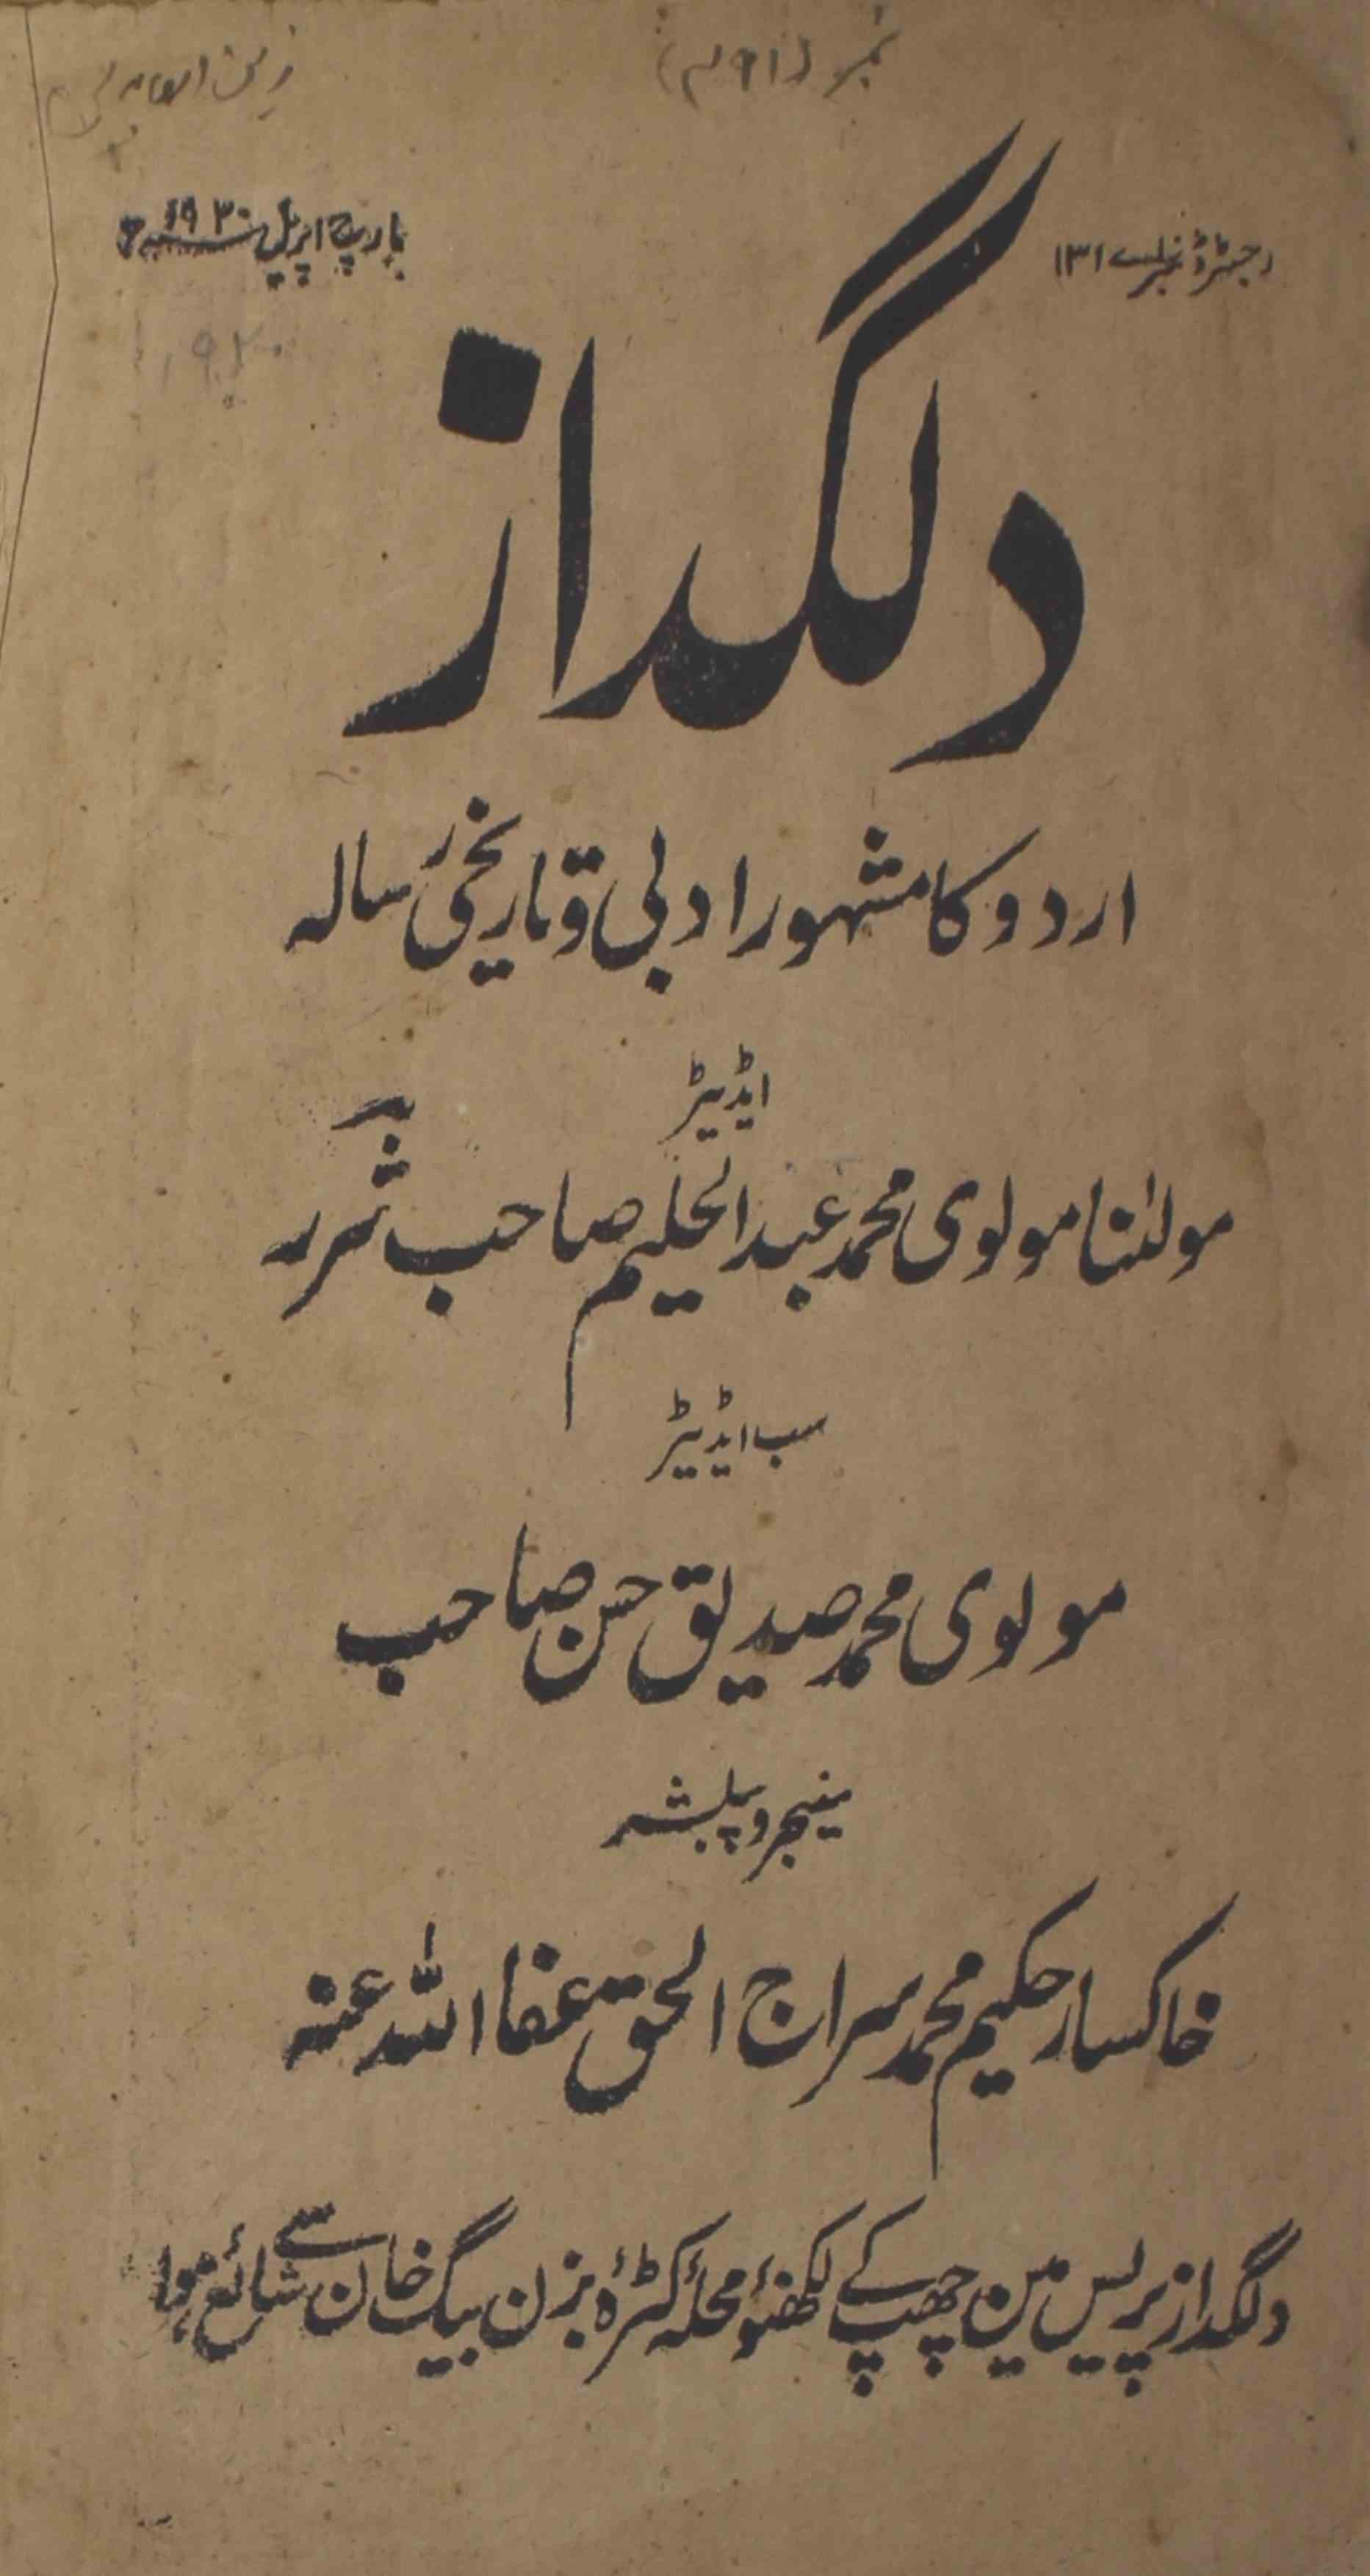 نمبر (۴۹۱)
رجسٹرڈ نمبر اے ۱۳۱
مارچ اپریل ۱۹۳۰ء
دلگداز
اردو کا مشہور ادبی و تاریخی رسالہ
ایڈیٹر
مولٰنا مولوی محمد عبد الحلیم صاحب شرر
سب ایڈیٹر
مولوی محمد صدیق حسن صاحب
منیجر و پبلشر
خاکسار حکیم محمد سراج الحق عفا اللہ عنہ
دلگداز پریس مین چھپ کے لکھنؤ محلہ کٹرۂ بزن بیگ خان سے شائع ہوا